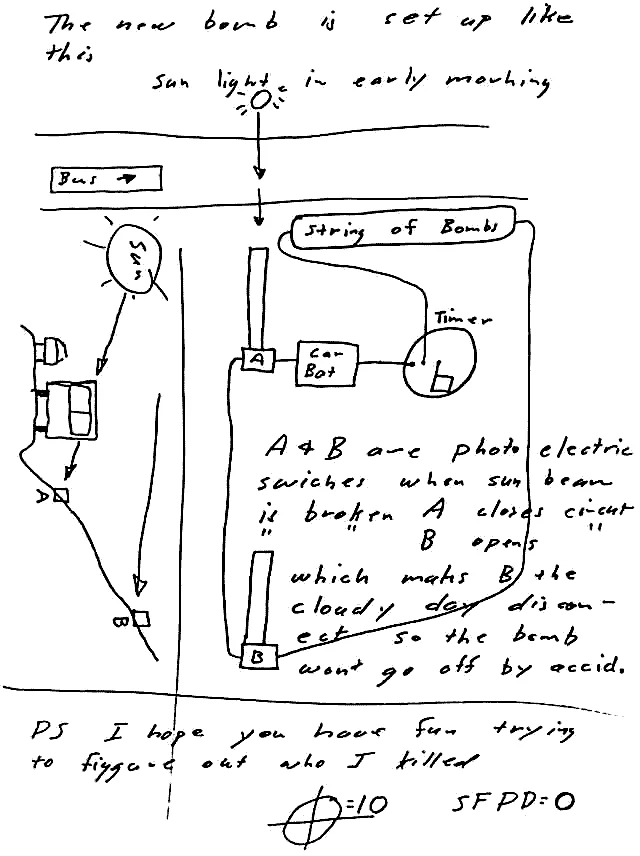 The new bomb is set up like
this
sun light in early morning
Bus
Sun
String of Bombs
Timer
A
Car
Bat
A & B are photo electric
swiches when sun beam
is broken A closes circut
" " B opens "
A
B
which makes B the
cloudy day discon-
ect so the bomb
wont go off by accid.
B
PS I hope you have fun trying
to figgure out who I killed
=10 SFPD=0